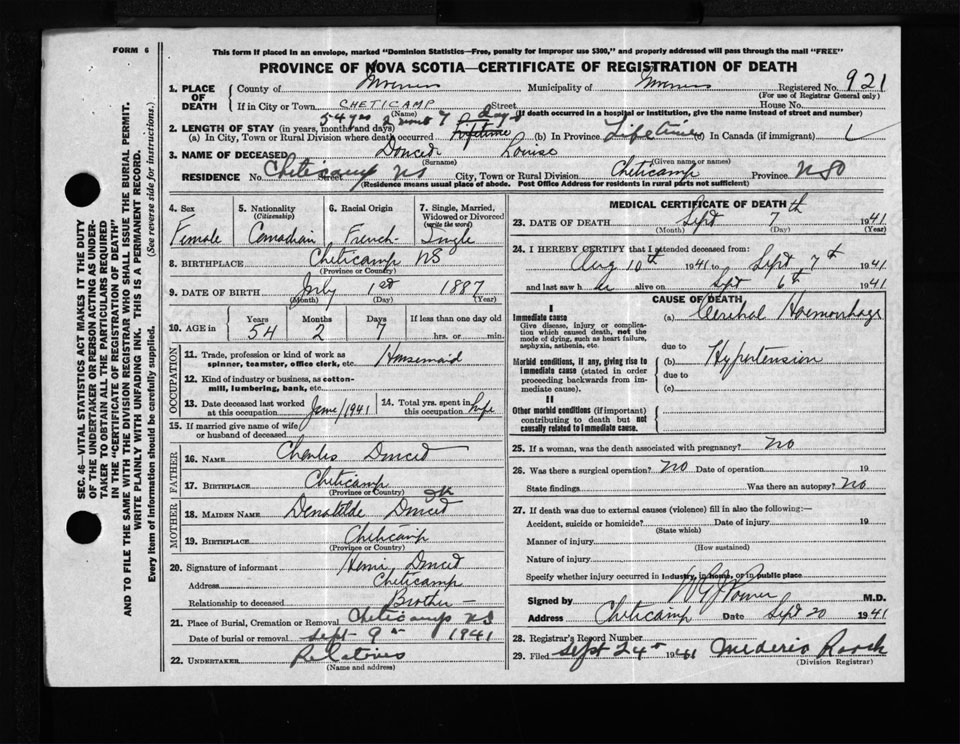 FORM 6
This form if placed in an envelope, marked "Dominion Statistics—Free, penalty for improper use $300," and properly addressed will pass through the mail "FREE"
PROVINCE OF NOVA SCOTIA—CERTIFICATE OF REGISTRATION OF DEATH
1. PLACE OF DEATH
County of Inverness Municipality of Inverness Registered No. 921
(For use of Registrar General only)
If in City or Town CHETICAMP Street House No.
(Name) (If death occurred in a hospital or institution, give the name instead of street and number)
54 yrs 2 mont 7 days
2. LENGTH OF STAY (in years, months and days)
(a) In City, Town or Rural Division where death occurred Lifetime (b) In Province Lifetime (c) In Canada (if immigrant)
3. NAME OF DECEASED Doucet Louise
(Surname) (Given name or names)
RESIDENCE No. Cheticamp NS Street City, Town or Rural Division Cheticamp Province
(Residence means usual place of abode. Post Office Address for residents in rural parts not sufficient)
4. Sex Female
5. Nationality (Citizenship) Canadian
6. Racial Origin French
7. Single, Married, Widowed or Divorced (write the word) Single
8. BIRTHPLACE Cheticamp NS
(Province or Country)
9. DATE OF BIRTH July 1st 1887
(Month) (Day) (Year)
10. AGE in Years 54 Months 2 Days 7 If less than one day old hrs. or min.
OCCUPATION
11. Trade, profession or kind of work as spinner, teamster, office clerk, etc. Housemaid
12. Kind of industry or business, as cotton-mill, lumbering, bank, etc.
13. Date deceased last worked at this occupation June/1941
14. Total yrs. spent in this occupation Life
15. If married give name of wife or husband of deceased
FATHER
16. NAME Charles Doucet
17. BIRTHPLACE Cheticamp
(Province or Country)
MOTHER
18. MAIDEN NAME Doucet
19. BIRTHPLACE Cheticamp
(Province or Country)
20. Signature of informant Henri Doucet
Address Cheticamp
Relationship to deceased Brother
21. Place of Burial, Cremation or Removal Cheticamp NS
Date of burial or removal Sept 9th 1941
22. UNDERTAKER Relatives
(Name and address)
MEDICAL CERTIFICATE OF DEATH
23. DATE OF DEATH Sept 7th 1941
(Month) (Day) (Year)
24. I HEREBY CERTIFY that I attended deceased from:
Aug 10th 1941 to Sept 7th 1941
and last saw her alive on Sept 6th 1941
CAUSE OF DEATH
I
Immediate cause
Give disease, injury or complication which caused death, not the mode of dying, such as heart failure, asphyxia, asthenia, etc.
(a) Cerebral Haemorrhage
due to
Morbid conditions, if any, giving rise to immediate cause (stated in order proceeding backwards from immediate cause).
(b) Hypertension
due to
(c)
II
Other morbid conditions (if important) contributing to death but not causally related to immediate cause.
25. If a woman, was the death associated with pregnancy? No
26. Was there a surgical operation? No Date of operation 19
State findings Was there an autopsy? No
27. If death was due to external causes (violence) fill in also the following:—
Accident, suicide or homicide? Date of injury 19
(State which)
Manner of injury
(How sustained)
Nature of injury
Specify whether injury occurred in industry, in home, or in public place
Signed by Power M.D.
Address Cheticamp Date Sept 20 1941
28. Registrar's Record Number
29. Filed Sept 24th 1941
(Division Registrar)
SEC. 46—VITAL STATISTICS ACT MAKES IT THE DUTY
OF THE UNDERTAKER OR PERSON ACTING AS UNDER-
TAKER TO OBTAIN ALL THE PARTICULARS REQUIRED
IN THE "CERTIFICATE OF REGISTRATION OF DEATH"
AND TO FILE THE SAME WITH THE DIVISION REGISTRAR WHO SHALL ISSUE THE BURIAL PERMIT.
WRITE PLAINLY WITH UNFADING INK. THIS IS A PERMANENT RECORD.
Every item of information should be carefully supplied. (See reverse side for instructions.)